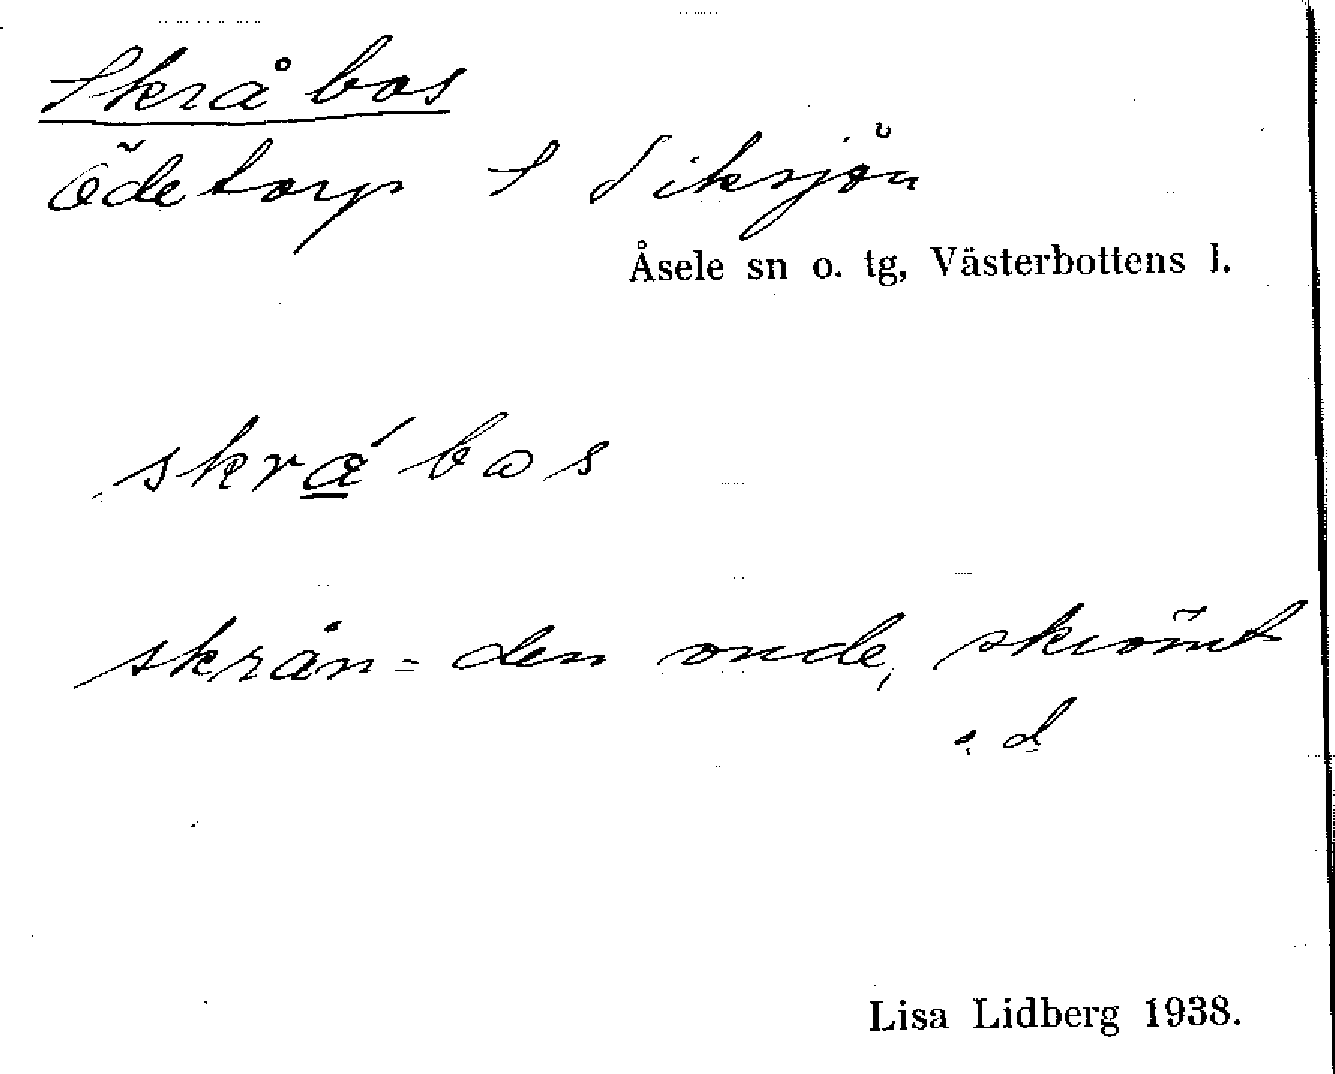 Skråbos
Ödetorp S Siksjön
Åsele sn o. tg, Västerbottens l.
skrábos
skrån = den onde, skrömt
o. d
Lisa Lidberg 1938.